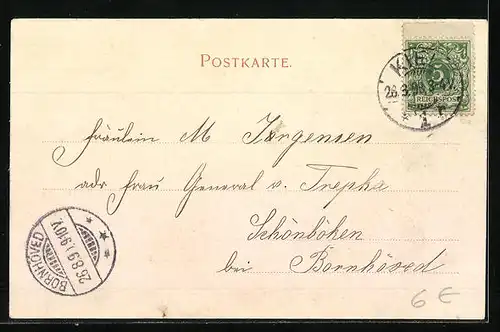 POSTKARTE.
KIEL
26.8.98 3-4N.
5
REICHSPOST
Fräulein M Jürgensen
adr Frau General v. Trepka
Schönböken
bei Bornhöved
BORNHÖVED
26.8.9
9-10V.
6 €